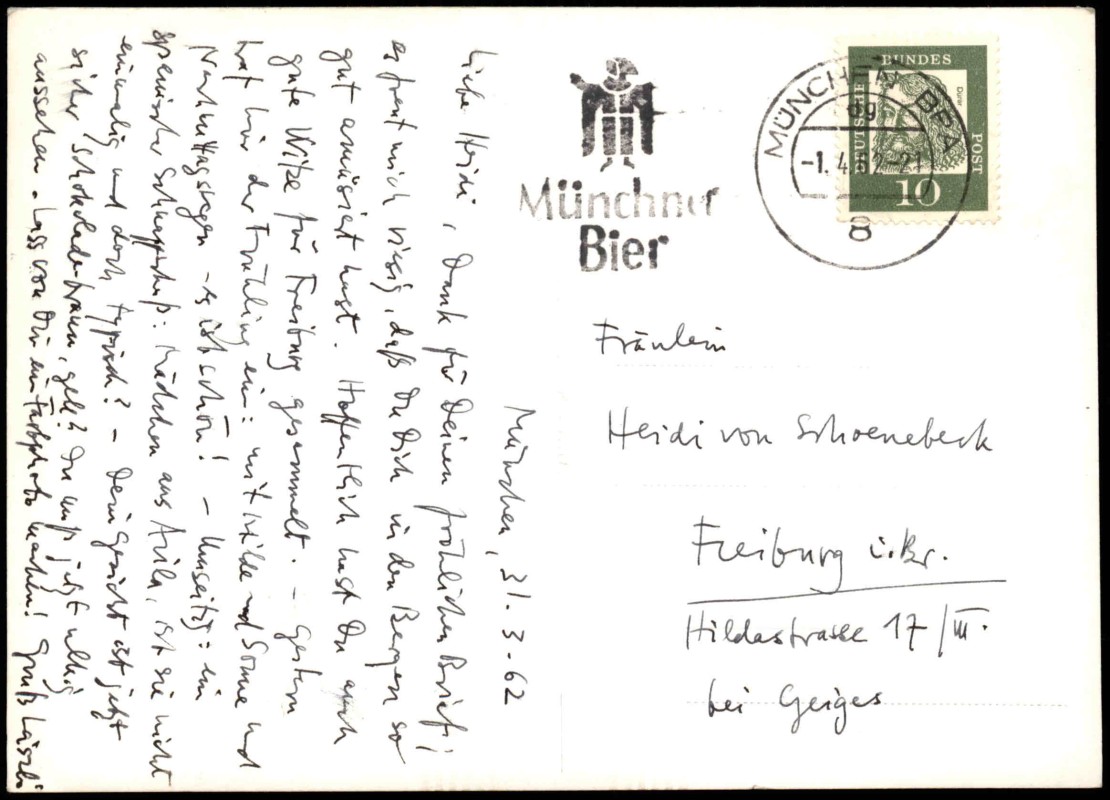 München, 31.3.62
Liebe Heidi, Dank für Deinen fröhlichen Brief;
es freut mich riesig, daß Du Dich in den Bergen so
gut amüsiert hast. Hoffentlich hast Du auch
gute Witze für Freiburg gesammelt. – Gestern
traf hier der Frühling ein: mit Milde und Sonne und
Nachmittagsregen – es ist schön! – Umseitig: ein
spanischer Schnappschuß: Mädchen aus Avila, ist sie nicht
einmalig und doch typisch? – Dein Gesicht ist jetzt
sicher schokoladebraun, gell? Du mußt jetzt ulkig
aussehen. Lass von Dir ein Farbphoto machen! Gruß
Münchner
Bier
MÜNCHEN BPA
dg
-1.4.62-21
8
DEUTSCHE
BUNDES
POST
Dürer
10
Fräulein
Heidi von Schoenebeck
Freiburg i.Br.
Hildastrasse 17/III.
bei Geiges